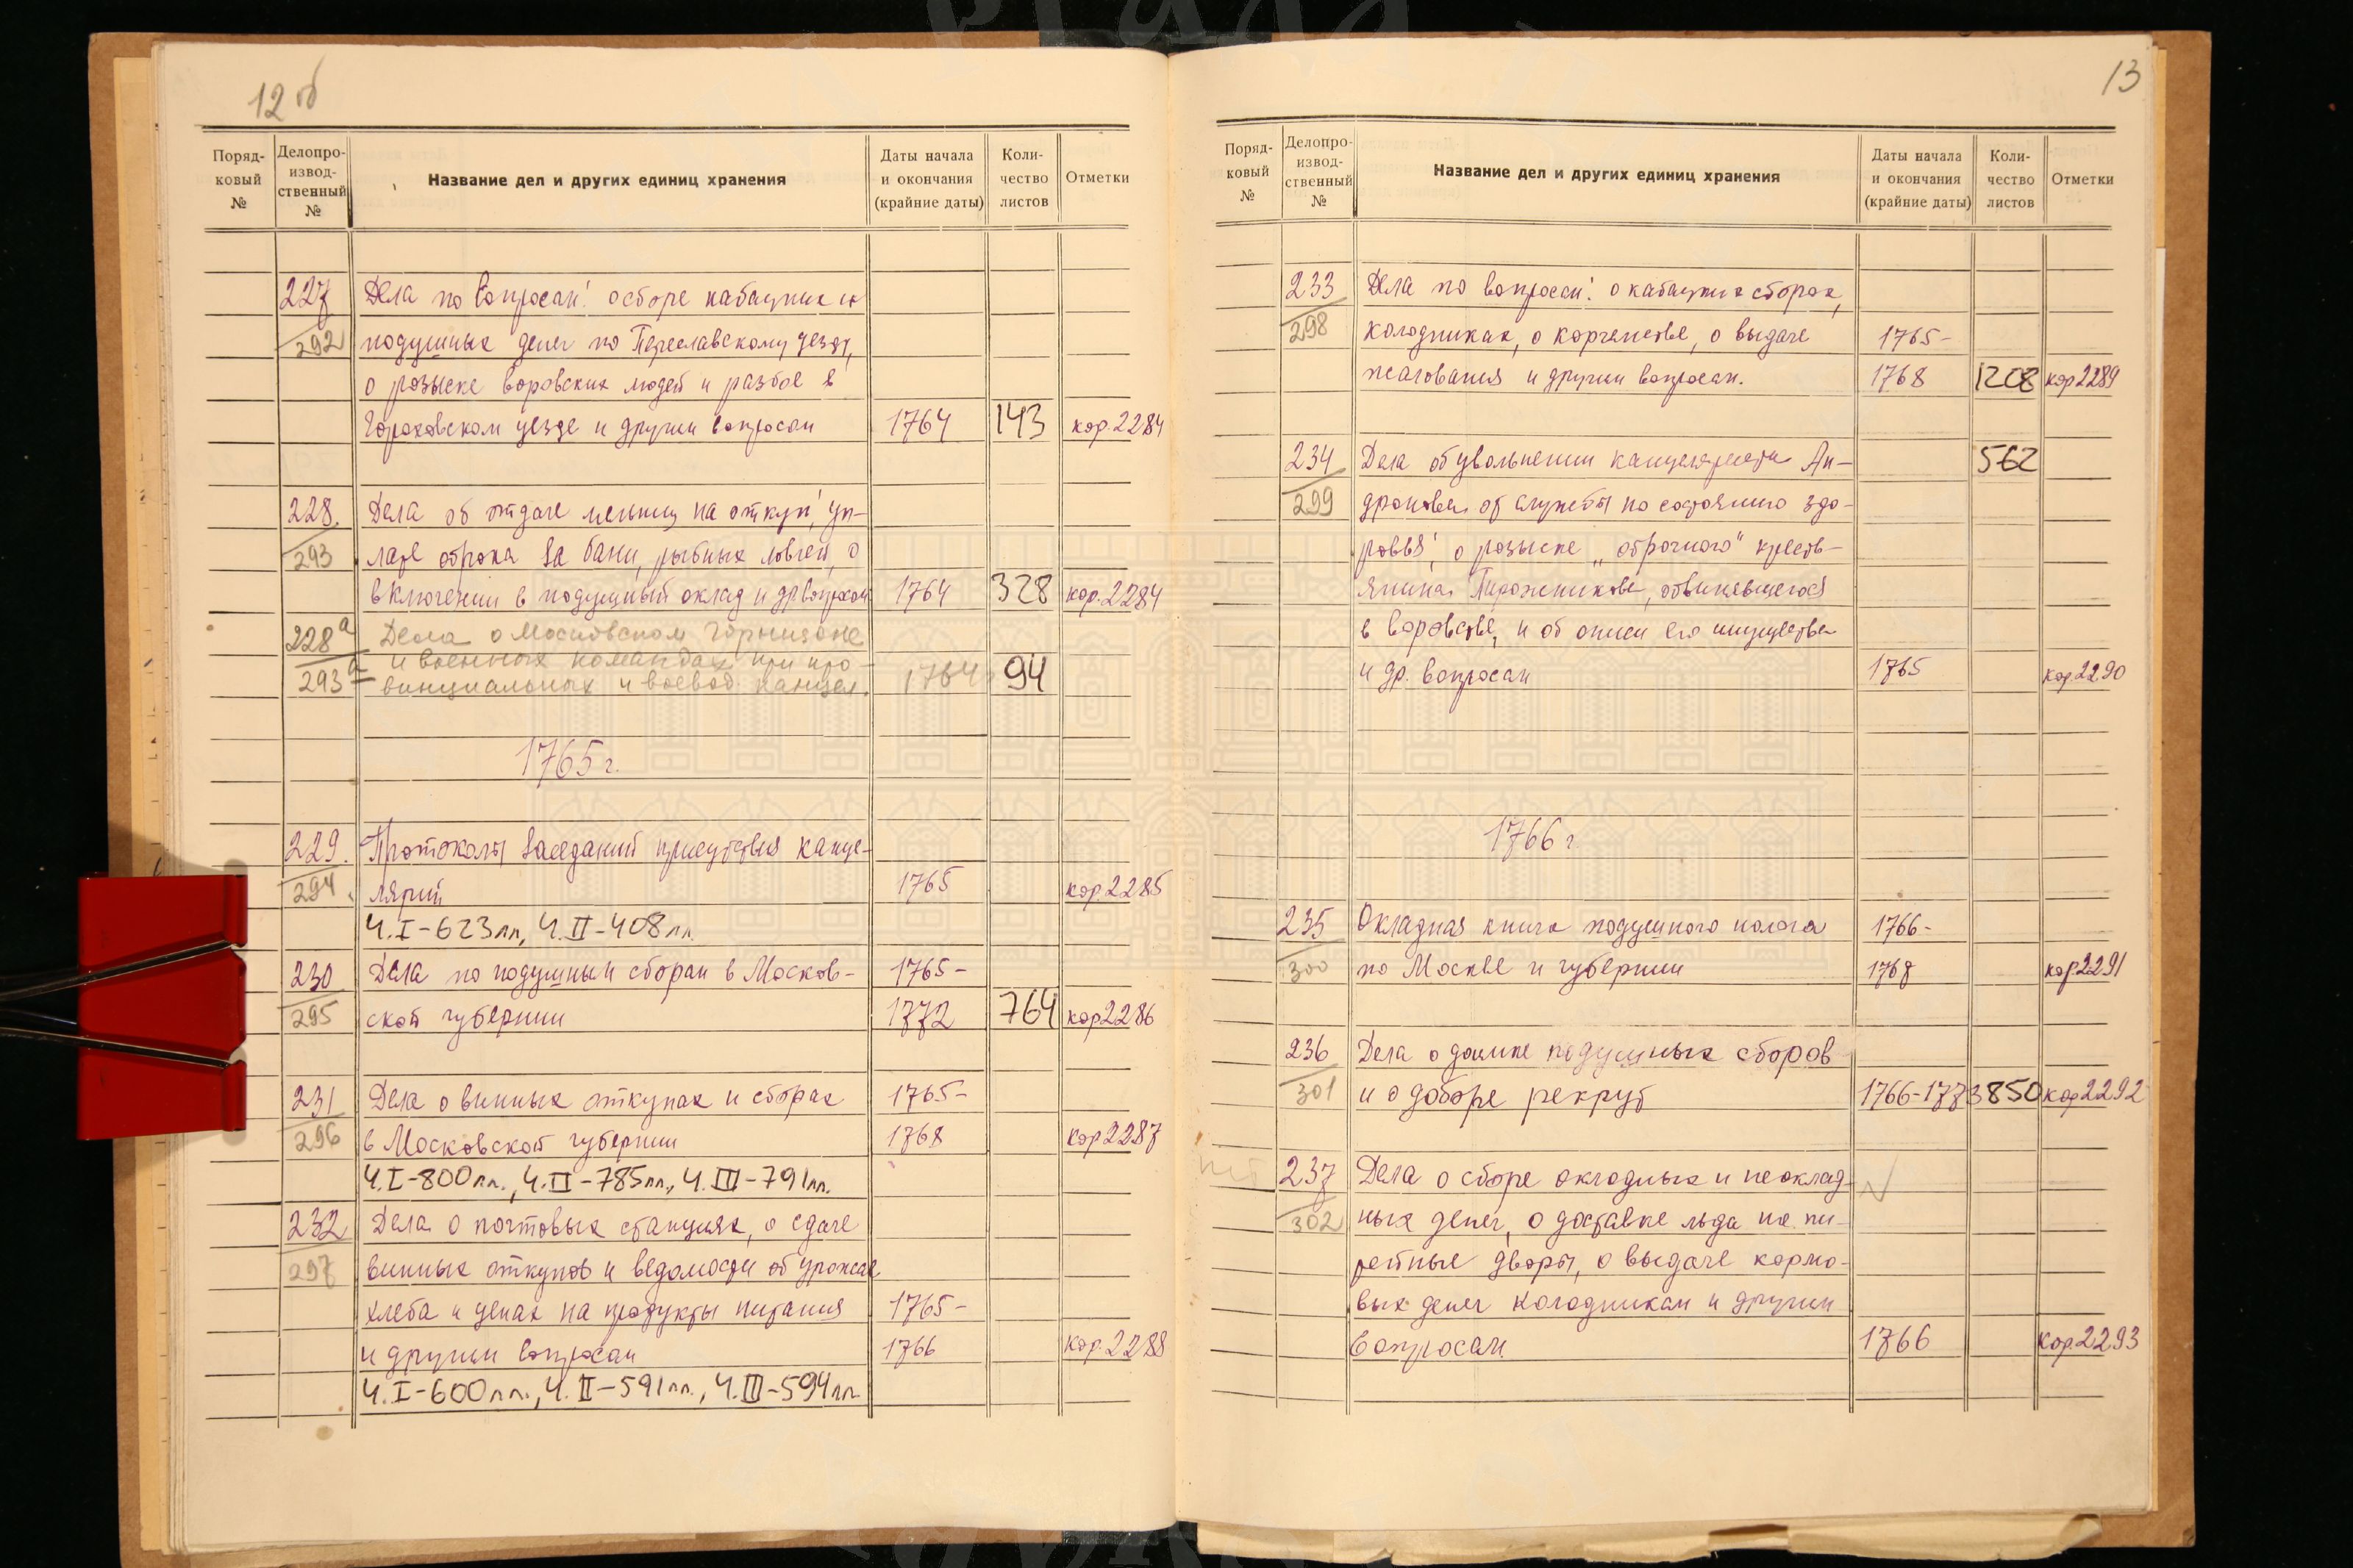 12 об
Поряд-
ковый
№
Делопро-
извод-
ственный
№
Название дел и других единиц хранения
Даты начала
и окончания
(крайние даты)
Коли-
чество
листов
Отметки
227 Дела по вопросам: о сборе кабацких и
292 подушных денег по Переславскому уезду,
о розыске воровских людей и разбое в
Гороховском уезде и другим вопросам 1764 143 кор. 2284
228. Дела об отдаче мельниц на откуп, уп-
293 лате оброка за бани, рыбных ловлей, о
включении в подушный оклад и др вопросам 1764 328 кор. 2284
228а Дела о Московском гарнизоне
и военных командах при про-
293а винциальных и воевод. канцел. 1764 94
1765 г.
229. Протоколы заседаний присутствия канце-
294. лярии 1765 кор. 2285
Ч. I - 623 лл, Ч. II - 408 лл.
230 Дела по подушным сборам в Москов- 1765-
295 ской губернии 1772 764 кор 2286
231 Дела о винных откупах и сборах 1765-
296 в Московской губернии 1768 кор 2287
Ч. I - 800 лл., Ч. II - 785 лл., Ч. III - 791 лл.
232 Дела о почтовых станциях, о сдаче
297 винных откупов и ведомости об урожае
хлеба и ценах на продукты питания 1765-
и другим вопросам 1766 кор. 2288
Ч. I - 600 лл., Ч. II - 591 лл., Ч. III - 594 лл.
13
Поряд-
ковый
№
Делопро-
извод-
ственный
№
Название дел и других единиц хранения
Даты начала
и окончания
(крайние даты)
Коли-
чество
листов
Отметки
233 Дела по вопросам: о кабацких сборах,
298 колодниках, о корчемстве, о выдаче 1765-
жалования и другим вопросам. 1768 1208 кор 2289
234 Дела об увольнении канцеляриста Ан- 562
299 дронова от службы по состоянию здо-
ровья, о розыске „оброчного" кресть-
янина Пирожникова, обвинявшегося
в воровстве, и об описи его имущества
и др. вопросам 1765 кор 2290
1766 г
235 Окладная книга подушного налога 1766-
300 по Москве и губернии 1768 кор. 2291
236 Дела о доимке подушных сборов
301 и о доборе рекрут 1766-1773 850 кор 2292
237 Дела о сборе окладных и неоклад-
302 ных денег, о доставке льда на пи-
тейные дворы, о выдаче кормо-
вых денег колодникам и другим
вопросам. 1766 кор. 2293